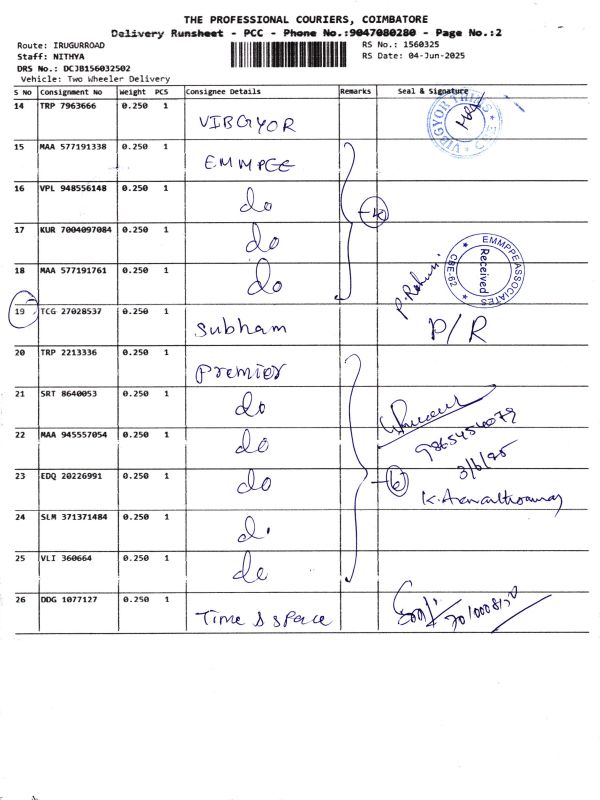 THE PROFESSIONAL COURIERS, COIMBATORE
Delivery Runsheet - PCC - Phone No.:9047080280 - Page No.:2
Route: IRUGURROAD
RS No.: 1560325
Staff: NITHYA
RS Date: 04-Jun-2025
DRS No.: DCJB156032502
Vehicle: Two Wheeler Delivery
S No Consignment No Weight PCS Consignee Details Remarks Seal & Signature
14 TRP 7963666 0.250 1 VIBGYOR
15 MAA 577191338 0.250 1 EMMPEE
16 VPL 948556148 0.250 1 do
17 KUR 7004097084 0.250 1 do
18 MAA 577191761 0.250 1 do
EMMPPEEASSOCIATES
Received
CBE-62
19 TCG 27028537 0.250 1 Subham P/R
20 TRP 2213336 0.250 1 Premier
21 SRT 8640053 0.250 1 do
22 MAA 945557054 0.250 1 do
3/6/25
23 EDQ 20226991 0.250 1 do
24 SLM 371371484 0.250 1 d.
25 VLI 360664 0.250 1 do
26 DDG 1077127 0.250 1 Time & space